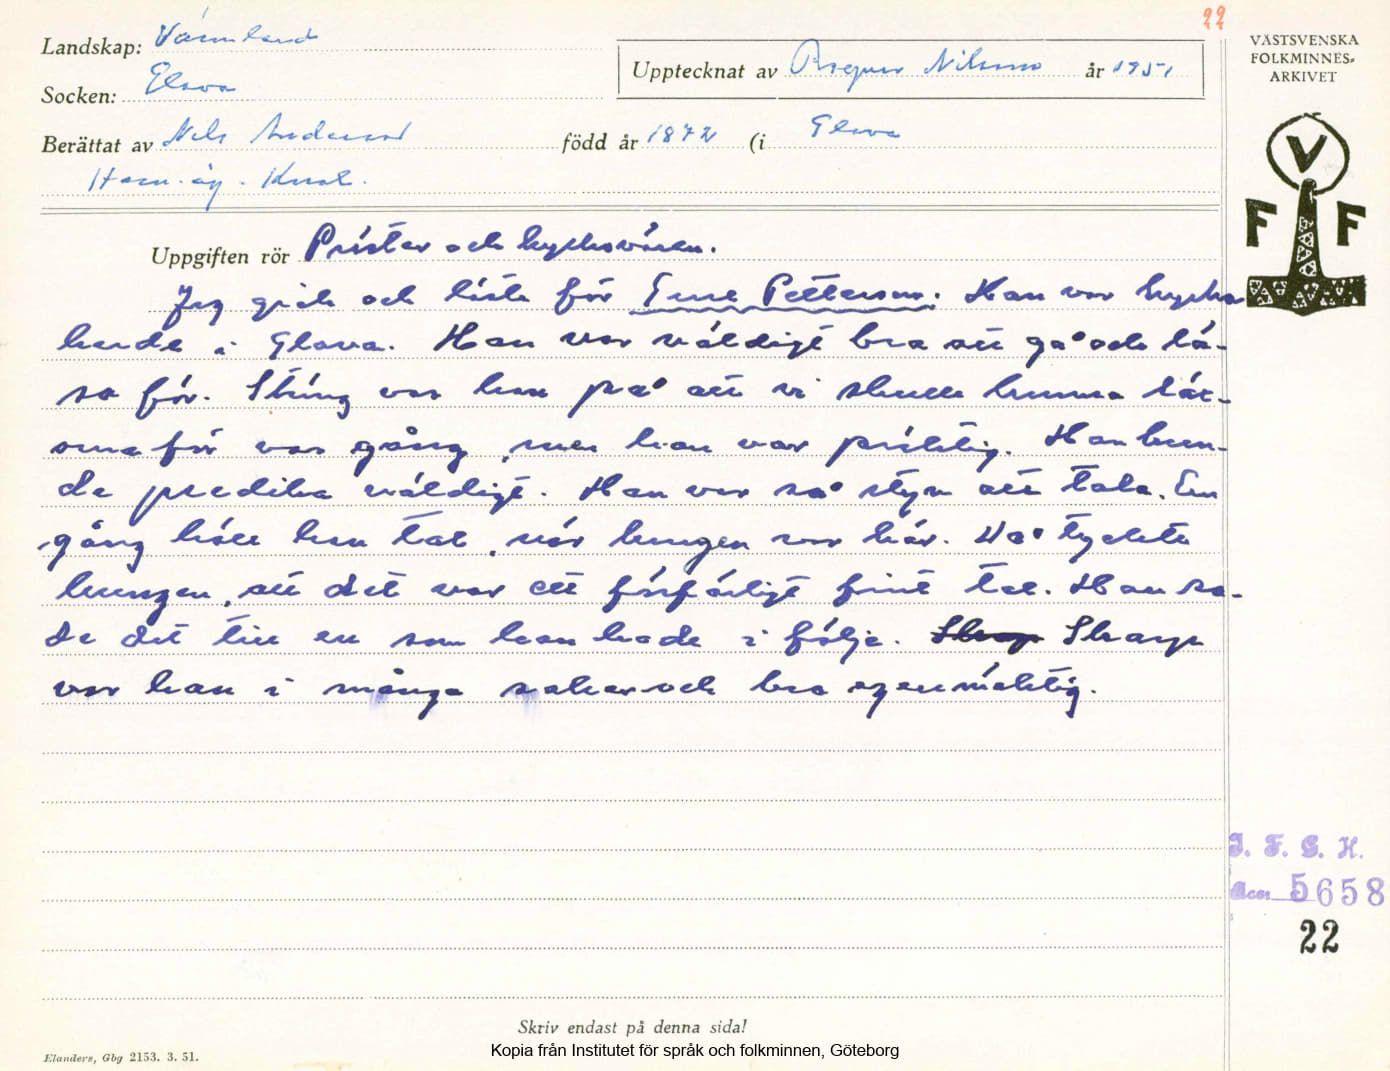 22
Landskap: Värmland
Upptecknat av Ragnar Nilsson år 1951
VÄSTSVENSKA
FOLKMINNES-
ARKIVET
Socken: Glava
Berättat av Nils Andersson född år 1872 (i Glava
Hem.äg.
V
F F
Uppgiften rör Präster och kyrkoväsen.
Jag gick och läste för Emil Petterson. Han var kyrko
herde i Glava. Han var väldigt bra att gå och lä-
sa för. Sträng var han på att vi skulle kunna läx-
orna för var gång, men han var präktig. Han kun-
de predika väldigt. Han var så styv att tala. En
gång höll han tal, när kungen var här. Då tyckte
kungen, att det var ett förfärligt fint tal. Han sa-
de det till en som han hade i följe. Skarp
var han i många saker och bra egenmäktig.
I. F. G. H.
Acc. 5658
22
Skriv endast på denna sida!
Elanders, Gbg 2153. 3. 51.
Kopia från Institutet för språk och folkminnen, Göteborg